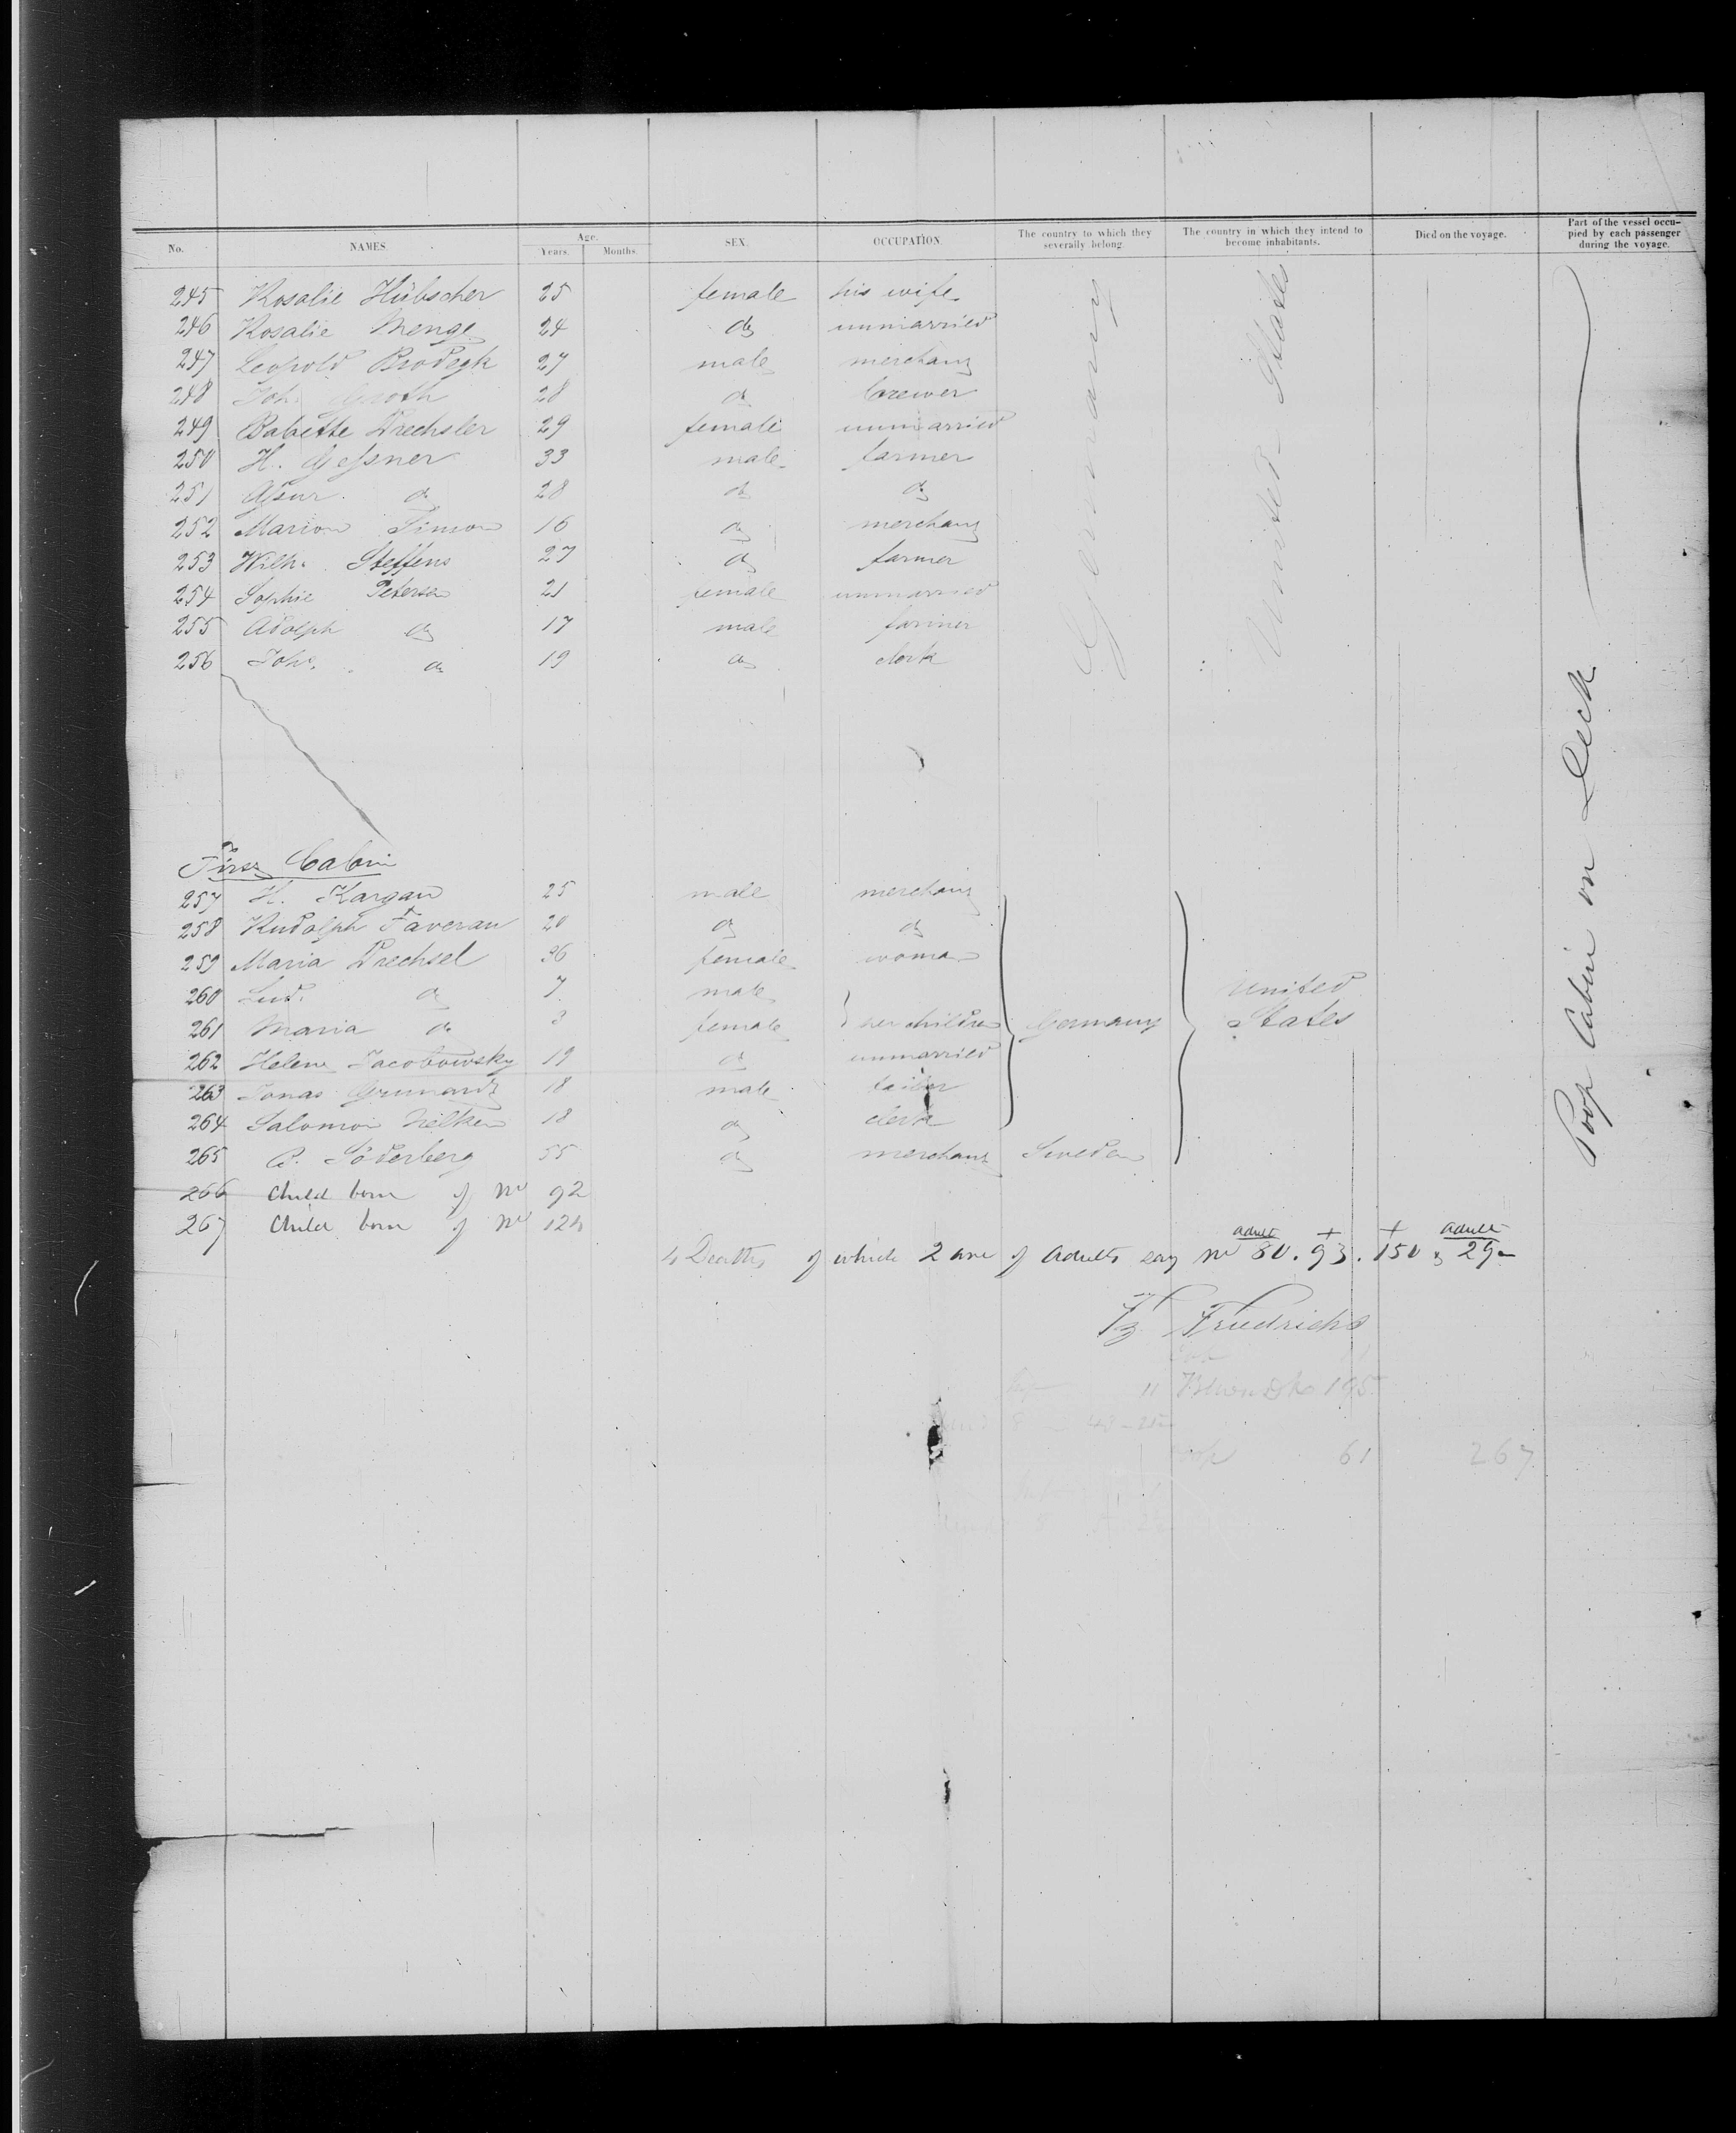 No. NAMES. Age. Years. Months. SEX. OCCUPATION. The country to which they severally belong. The country in which they intend to become inhabitants. Died on the voyage. Part of the vessel occupied by each passenger during the voyage.
245 Rosalie Hübscher 25 female his wife
246 Rosalie Menge 24 do unmarried
247 Leopold Brodegk 27 male merchant
248 Joh. Groth 28 do brewer
249 Babette Drechsler 29 female unmarried
250 H. Gessner 33 male farmer
251 Assur do 28 do do
252 Marion Simon 16 do merchant
253 Wilh. Steffens 27 do farmer
254 Sophie Petersen 21 female unmarried
255 Adolph do 17 male farmer
256 Joh. do 19 do clerk
Germany
United States
Poop Cabin on Deck
First Cabin
257 H. Kargau 25 male merchant
258 Rudolph Taverau 20 do do
259 Maria Drechsel 36 female woman
260 Lud. do 7 male
261 Maria do 3 female her children Germany United States
262 Helene Jacobowsky 19 do unmarried
263 Jonas Grumandt 18 male tailor
264 Salomon Nelken 18 do clerk
265 B. Söderberg 55 do merchant Sweden
266 Child born of No 92
267 Child born of No 124
4 Deaths of which 2 are of adults say No 80. 93. 150 & 29
adult + + adult
Friedrichs
11 195
61 267